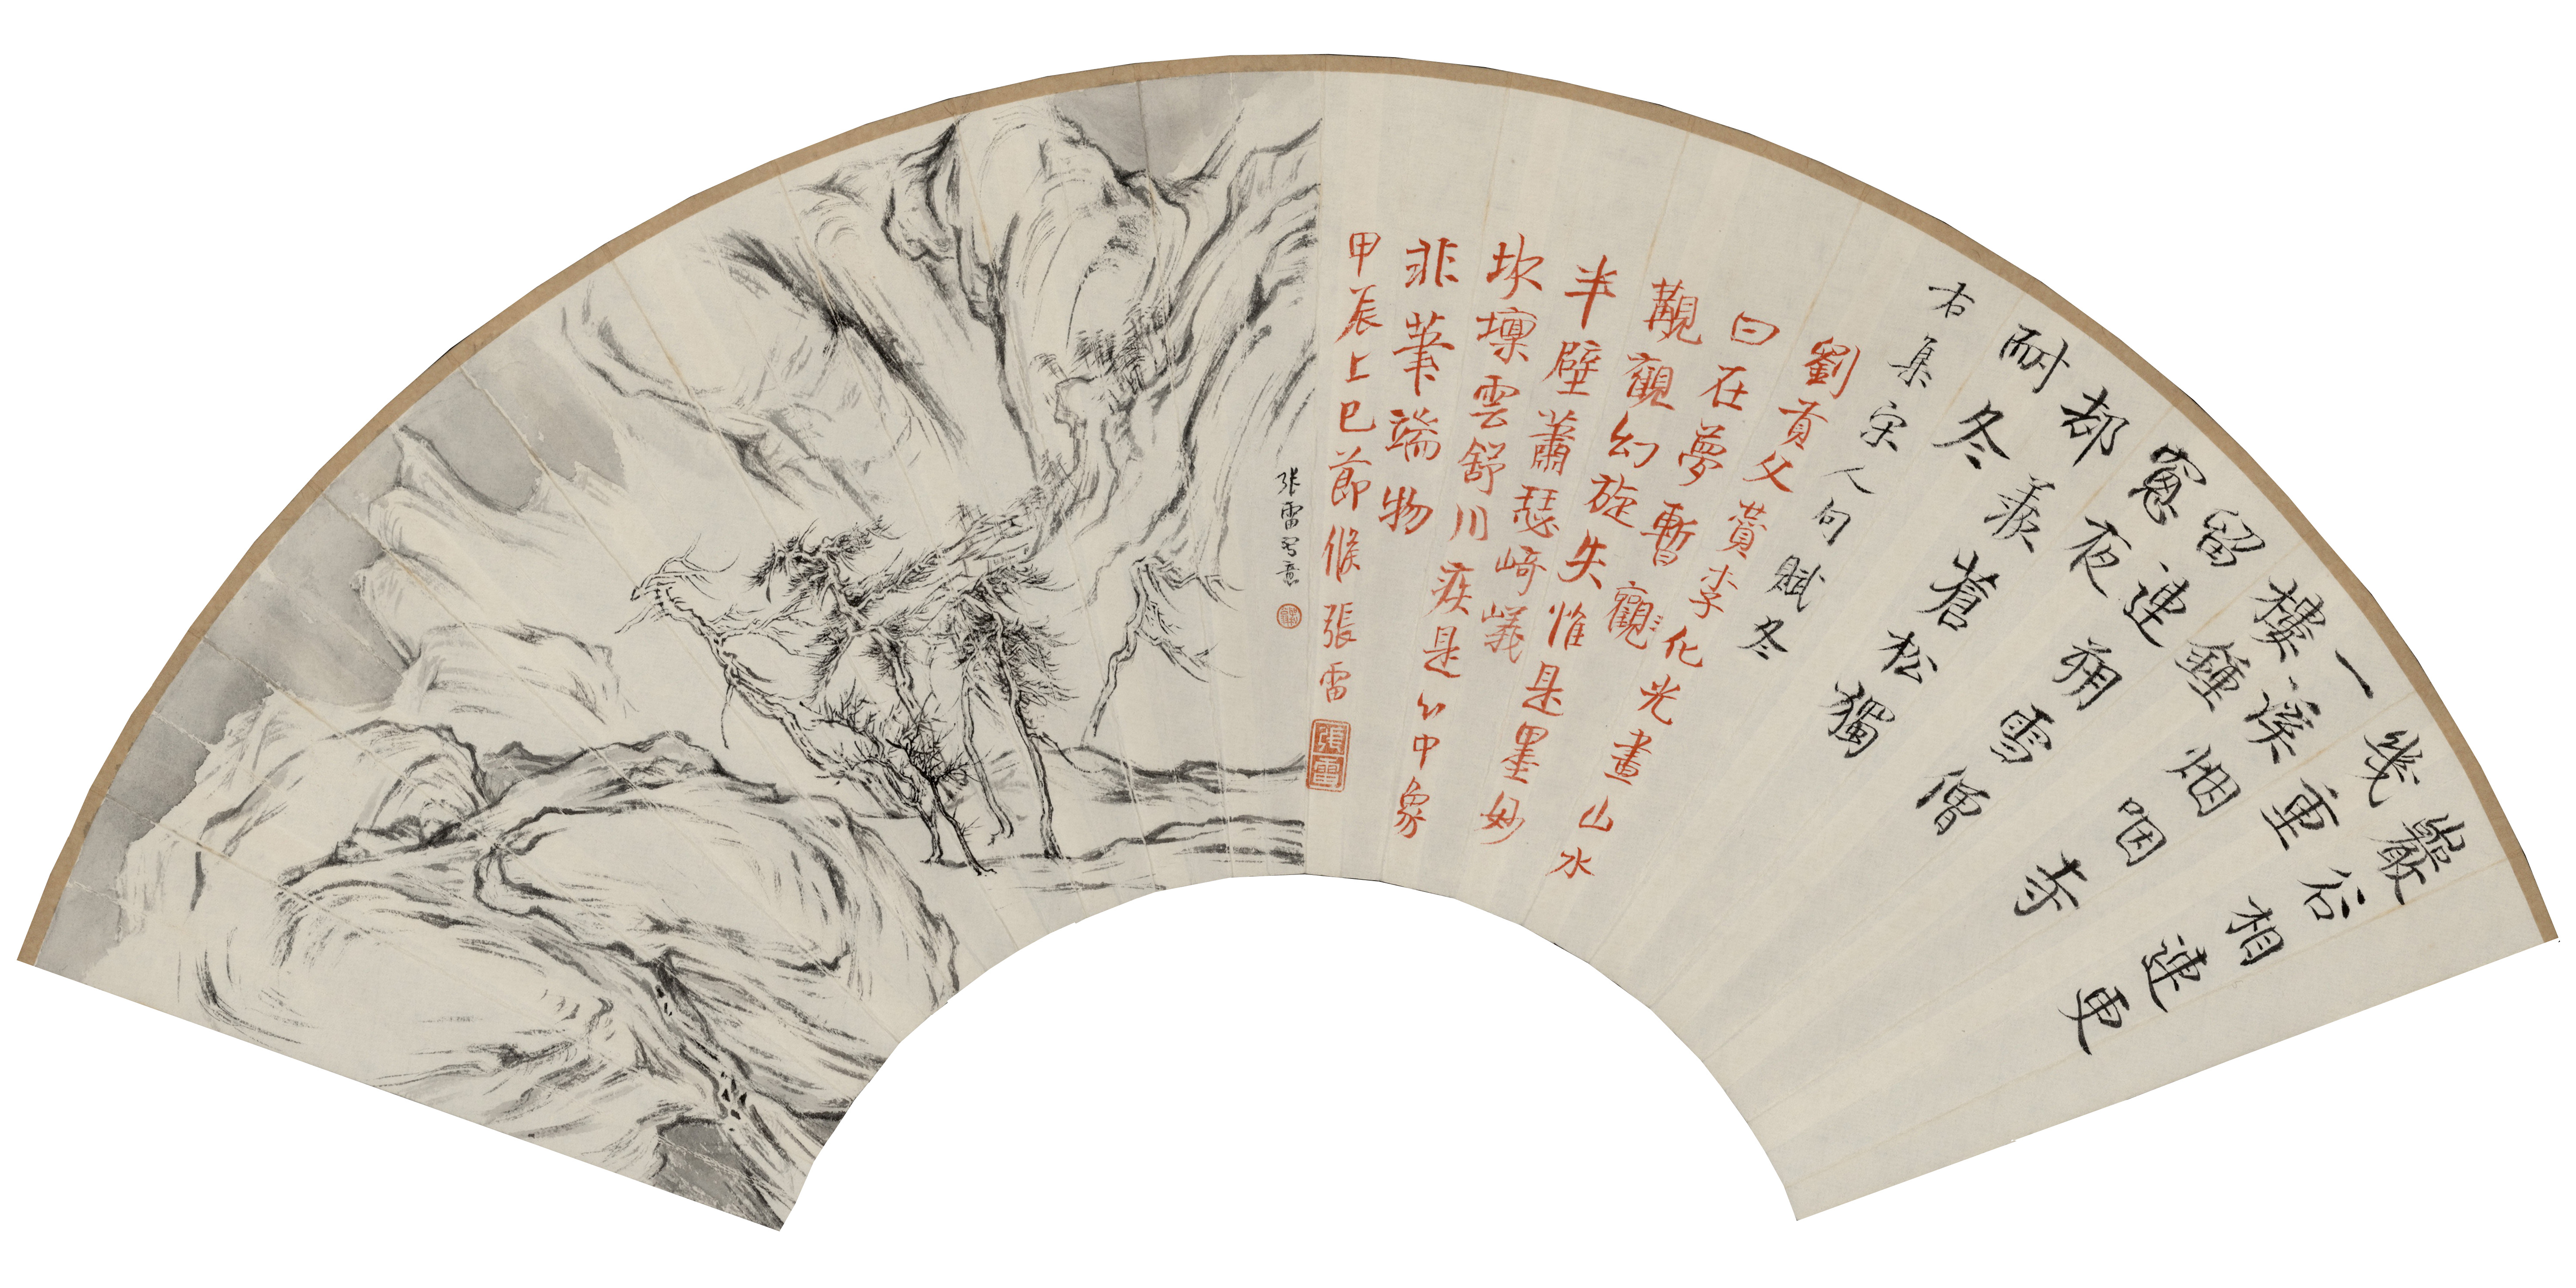 巖谷相連更
幾重
一溪烟咽寺
樓鍾
留連朔雪僧
窗夜
都羨蒼松獨
耐冬
右集宋人句賦冬
劉貢父贊李化光畫山水
曰在夢暫觀
覯觀幻旋失惟是墨妙
半壁蕭瑟崎嶬
坎壈雲舒川疾是以中象
非筆端物
甲辰上巳節候張雷
張雷
張雷寫意